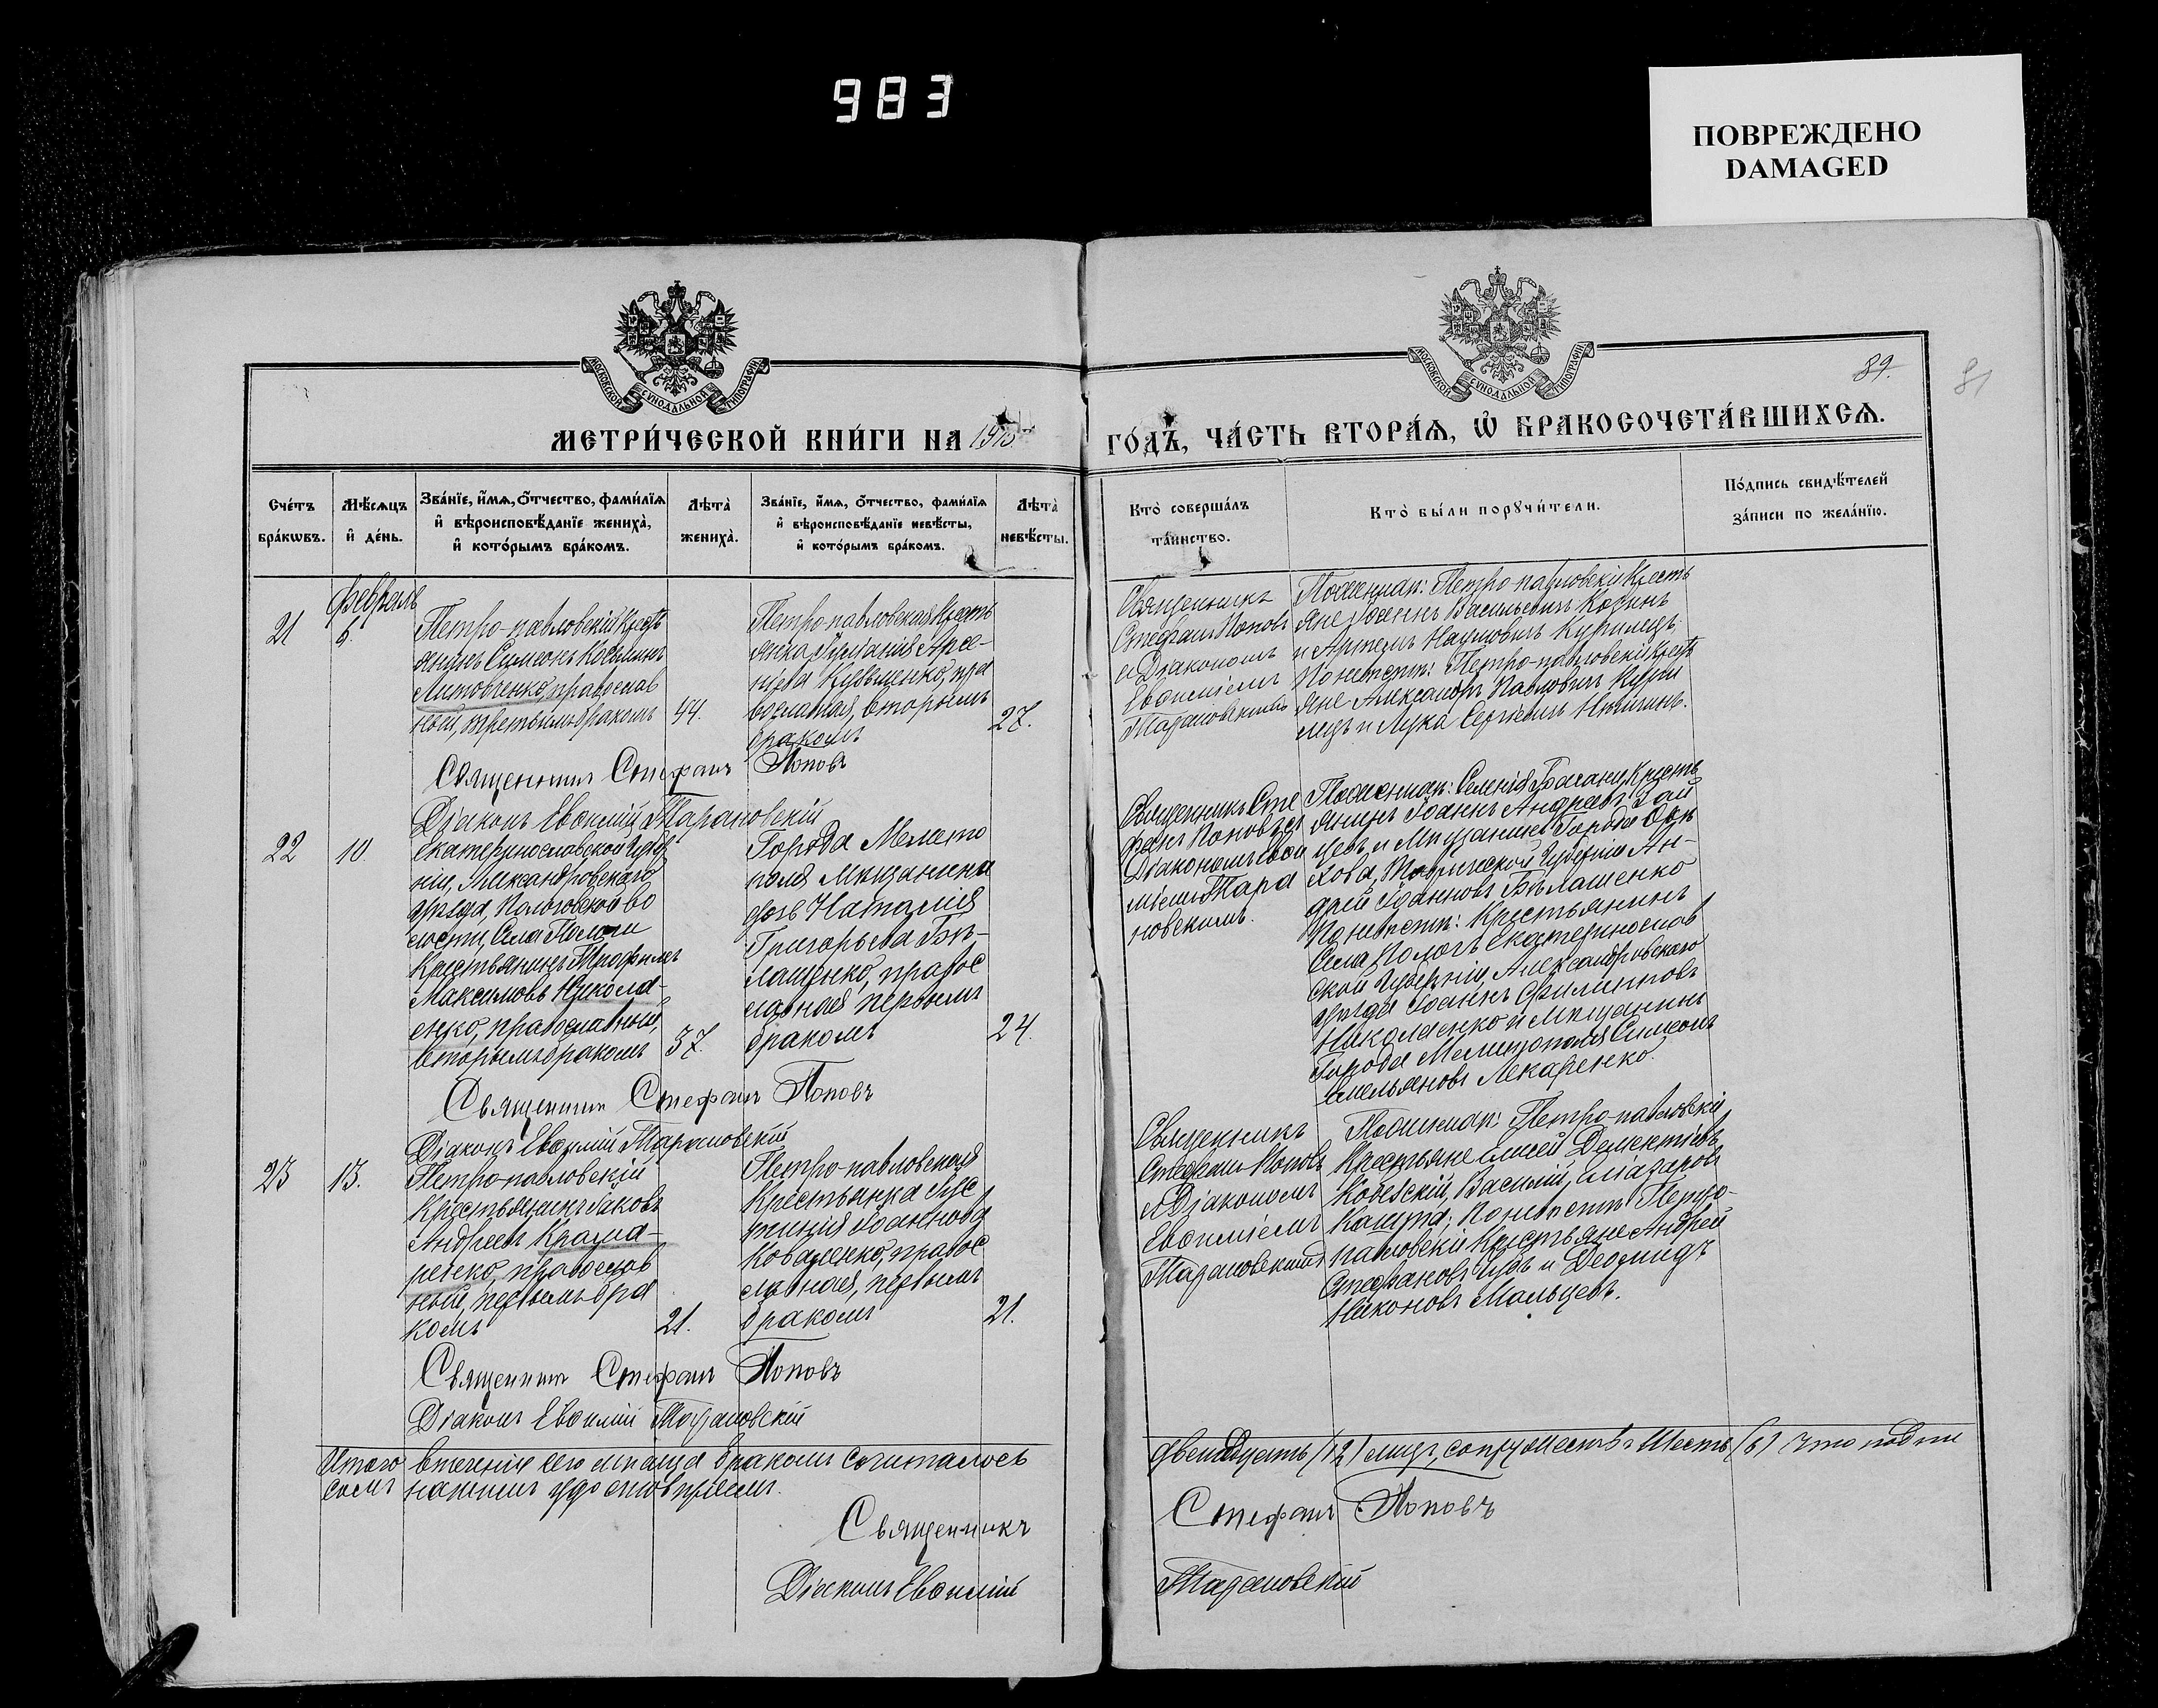 983
ПОВРЕЖДЕНО
DAMAGED
МОСКОВСКОЙ СѴНОДАЛЬНОЙ ТИПОГРАФІИ
МОСКОВСКОЙ СѴНОДАЛЬНОЙ ТИПОГРАФІИ
89.
81
МЕТРИ́ЧЕСКОЙ КНИ́ГИ НА
ГО́ДЪ, ЧА́СТЬ ВТОРА́Ѧ, Ѡ҆ БРАКОСОЧЕТА́ВШИХСѦ.
Сче́тъ
бра́кѡвъ.
Мѣ́сѧцъ
и҆ де́нь.
Зва́нїе, и҆́мѧ, ѻ҆́тчество, фами́лїѧ
и҆ вѣроисповѣ́данїе жениха̀,
и҆ кото́рымъ бра́комъ.
Лѣта̀
жениха̀.
Зва́нїе, и҆́мѧ, ѻ҆́тчество, фами́лїѧ
и҆ вѣроисповѣ́данїе невѣ́сты,
и҆ кото́рымъ бра́комъ.
Лѣта̀
невѣ́сты.
Кто̀ соверша́лъ
та́инство.
Кто̀ бы́ли порꙋчи́тели.
По́дпись свидѣ́телей
за́писи по жела́нїю.
Февраль
21
6.
Петро-павловскій Кресть
янинъ Симеонъ Косьминъ
Литовченко, православ
ный, третьимъ бракомъ
44.
Петро-павловская Кресть
янка Арсе-
Кузьменко, пра
вославная, вторымъ
бракомъ
27.
Священникъ
Стефанъ Поповъ
съ Діакономъ
Евѳиміемъ
Тарановскимъ
По женихѣ: Петро-павловскіе Кресть
яне Іоаннъ Васильевъ Козинъ
и Артемъ Наумовъ Курилецъ;
По невѣстѣ: Петро-павловскіе Кресть
яне Александръ Павловъ Кури
лецъ и Лука Сергіевъ
Священникъ Стефанъ Поповъ
Діаконъ Евѳимій Тарановскій
22
10.
Екатеринославской Губер
ніи, Александровскаго
уѣзда, Пологовской во
лости, Села Пологи
Крестьянинъ Трофимъ
Максимовъ Никола-
енко, православный,
вторымъ бракомъ
37.
Города Мелито
поля Мѣщанина
дочь Наталія
Григорьева Бѣ-
лашенко, правос
лавная первымъ
бракомъ
24.
Священникъ Сте
фанъ Поповъ съ
Діакономъ Евѳи
міемъ Тара
новскимъ.
По женихѣ: Селенія Крестъ
янинъ Іоаннъ Андреевъ Зай
цевъ и Мѣщанинъ Города Орѣ
хова, Таврической Губерніи Ан-
дрей Іоанновъ Бѣлашенко
По невѣстѣ: Крестьянинъ
Села Пологъ Екатеринослав
ской Губерніи, Александровскаго
уѣзда Іоаннъ Филипповъ
Николаенко и Мѣщанинъ
Города Мелитополя Симеонъ
Емельяновъ Лекаренко.
Священникъ Стефанъ Поповъ
Діаконъ Евѳимій Тарановскій
23
13.
Петро-павловскій
Крестьянинъ Іаковъ
Андреевъ Крама-
ренко, православ
ный, первымъ бра
комъ
21.
Петро-павловская
Крестьянка Іус
тинія Іоаннова
Коваленко, правос
лавная, первымъ
бракомъ
21.
Священникъ
Стефанъ Поповъ
съ Діакономъ
Евѳиміемъ
Тарановскимъ
По женихѣ: Петро-павловскіе
Крестьяне Дементіевъ
Василій Лазаревъ
По невѣстѣ Петро-
павловскіе Крестьяне Андрей
Стефановъ и Деомидъ
Никоновъ Мальцевъ.
Священникъ Стефанъ Поповъ
Діаконъ Евѳимій Тарановскій
Итого въ теченіи сего мѣсяца бракомъ сочиталось
двенадцать (12) лицъ, супружествъ шесть (6) что подпи
семъ нашимъ удостовѣряемъ.
Священникъ Стефанъ Поповъ
Діаконъ Евѳимій Тарановскій